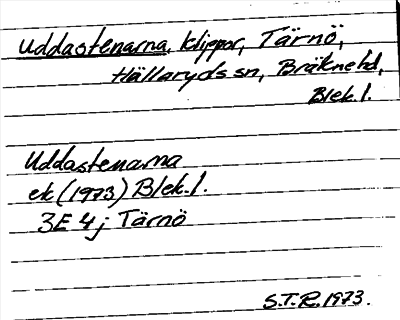 Uddastenarna, klippor, Tärnö,
Hällaryds sn, Bräkne hd,
Blek. l.
Uddastenarna
ek (1973) Blek. l.
3E 4j Tärnö
S.T.R. 1973.